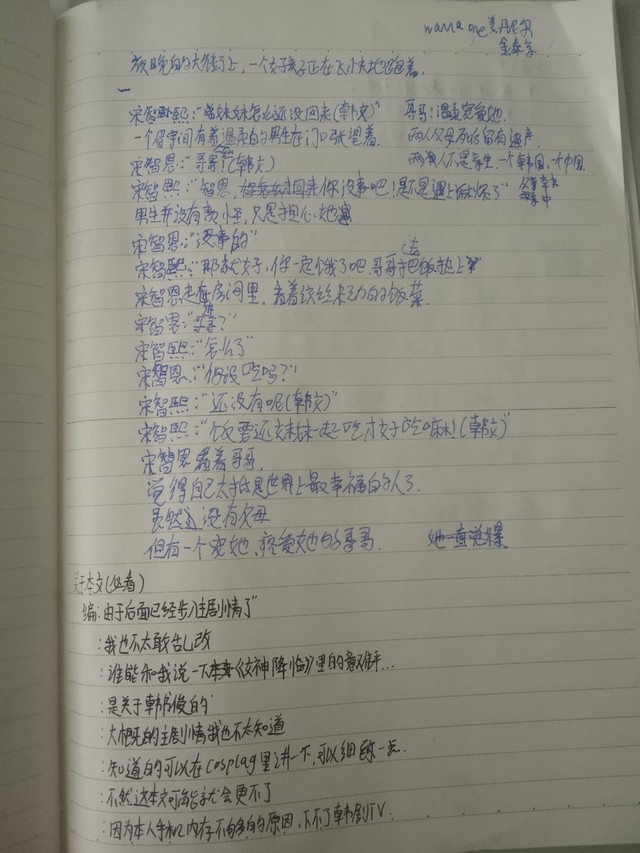 wanna one姜丹尼尔
金泰亨
傍晚的大街上,一个女孩子正在飞快地跑着.
宋智熙:"妹妹怎么还没回来(韩文)"
哥哥:温柔宠爱她.
一个眉宇间有着温柔的男生在门口张望着.
两人父母死后留有遗产.
宋智恩:"哥哥!(韩文)
两人不是孪生.一个韩国,一个中国.
宋智熙:"智恩,回来你没事吧!是不是遇上麻烦了"
父
男生并没有责怪,只是担心她
宋智恩:"没事的"
宋智熙:"那就好.你一定饿了吧.哥哥去把饭热上"
宋智恩走在房间里,看着纹丝未动的饭菜.
宋智恩:"哥哥?"
宋智熙:"怎么了"
宋智恩:"你没吃吗?"
宋智熙:"还没有呢(韩文)"
宋智熙:"饭要还妹妹一起吃才好吃嘛!(韩文)"
宋智恩看着哥哥.
觉得自己大抵是世界上最幸福的人了.
虽然没有父母
但有一个宠她、疼爱她的哥哥.
她一直觉得
关于本文(必看)
编:由于后面已经步入主剧情了"
:我也不太敢乱改
:谁能和我说一下《女神降临》里的
:是关于韩书俊的
:大概的主剧情我也不太知道
:知道的可以在Cosplay里讲一下,可以细致一点.
:不然这本文可能就会更不了
:因为本人手机内存不够的原因,下不了韩剧TV.